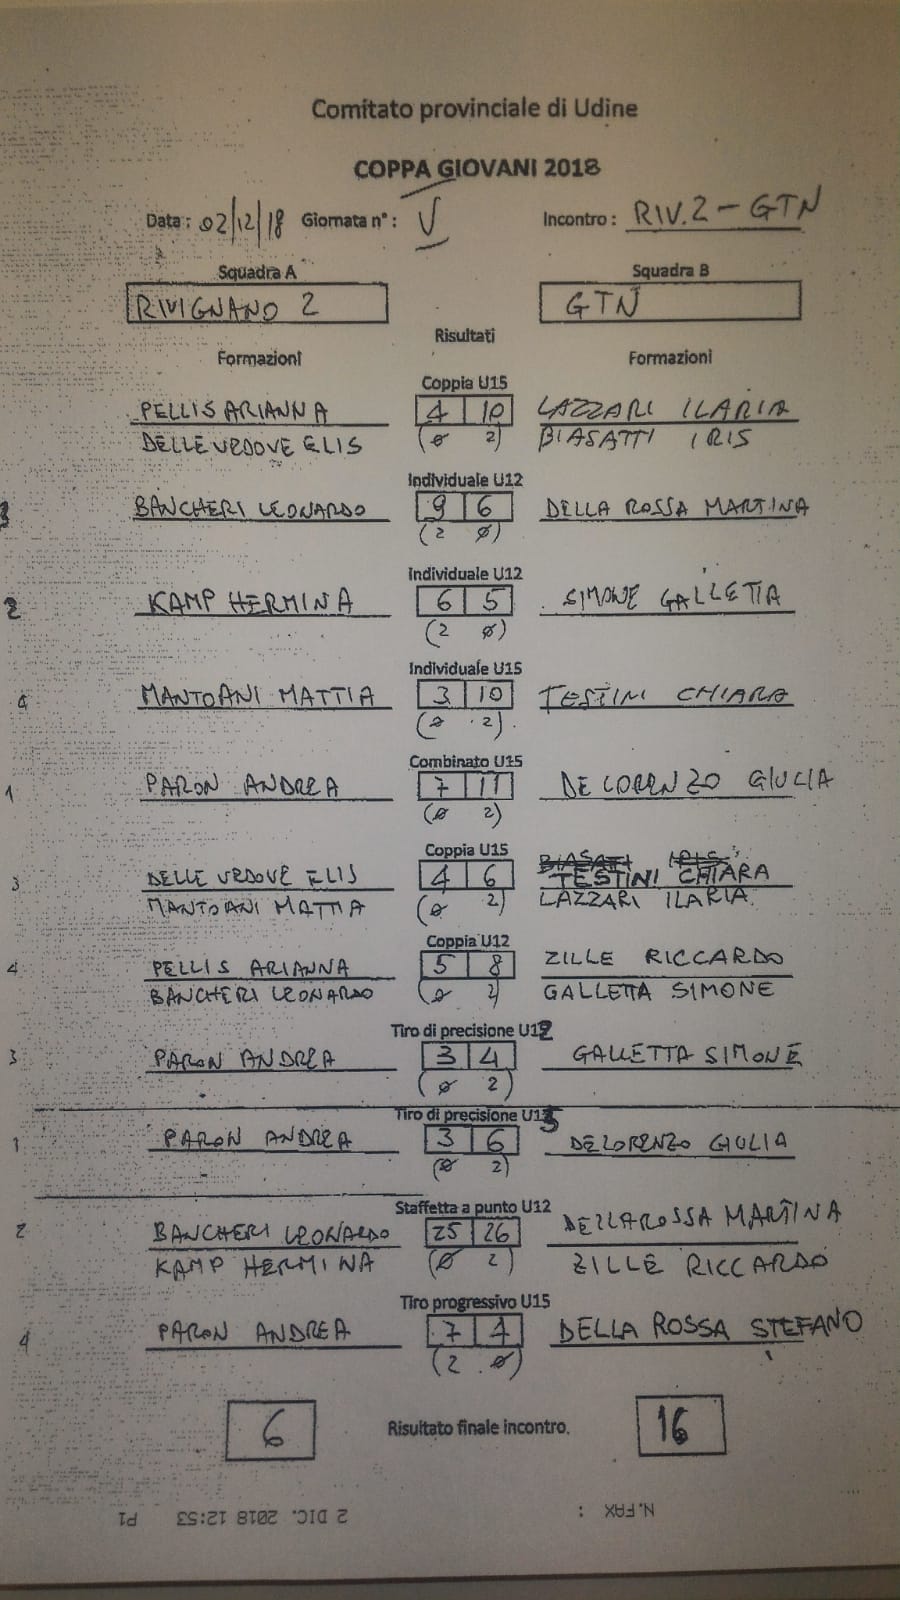 Comitato provinciale di Udine
COPPA GIOVANI 2018
Data : 02/12/18 Giornata n° : V Incontro : RIV.2 - GTN
Squadra A Squadra B
RIVIGNANO 2 GTN
Risultati
Formazioni Formazioni
Coppia U15
PELLIS ARIANNA 4 10 LAZZARI ILARIA
DELLE VEDOVE ELIS (0 2) BIASATTI IRIS
Individuale U12
3 BANCHERI LEONARDO 9 6 DELLA ROSSA MARTINA
(2 0)
Individuale U12
2 KAMP HERMINA 6 5 SIMONE GALLETTA
(2 0)
Individuale U15
4 MANTOANI MATTIA 3 10 TESTINI CHIARA
(0 2)
Combinato U15
1 PARON ANDREA 7 11 DE LORENZO GIULIA
(0 2)
Coppia U15
BIASATTI IRIS
3 DELLE VEDOVE ELIS 4 6 TESTINI CHIARA
MANTOANI MATTIA (0 2) LAZZARI ILARIA
Coppia U12
4 PELLIS ARIANNA 5 8 ZILLE RICCARDO
BANCHERI LEONARDO (0 2) GALLETTA SIMONE
Tiro di precisione U12
3 PARON ANDREA 3 4 GALLETTA SIMONE
(0 2)
Tiro di precisione U15
1 PARON ANDREA 3 6 DELORENZO GIULIA
(0 2)
Staffetta a punto U12
2 BANCHERI LEONARDO 25 26 DELLAROSSA MARTINA
KAMP HERMINA (0 2) ZILLE RICCARDO
Tiro progressivo U15
4 PARON ANDREA 7 4 DELLA ROSSA STEFANO
(2 0)
6 Risultato finale incontro. 16
N.FAX : 2 DIC. 2018 12:53 P1